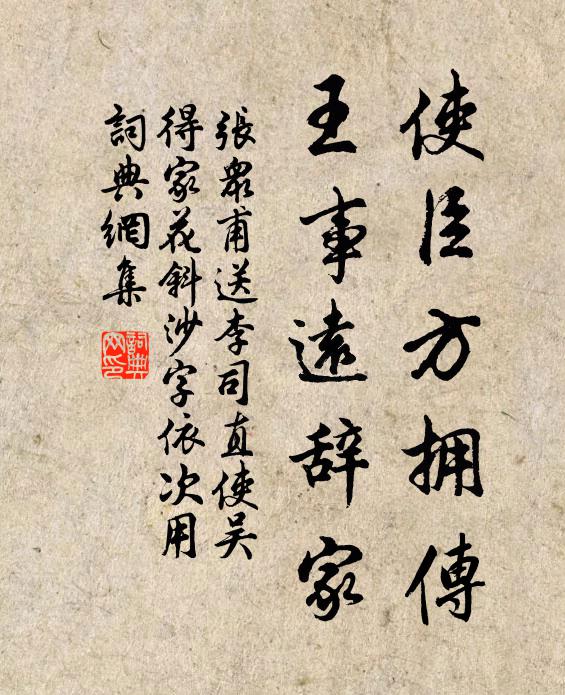 使臣方拥傳
王事遠辞家
張眾甫送李司直使吴
得家花斜沙字依次用
詞典網集
詞典
网印